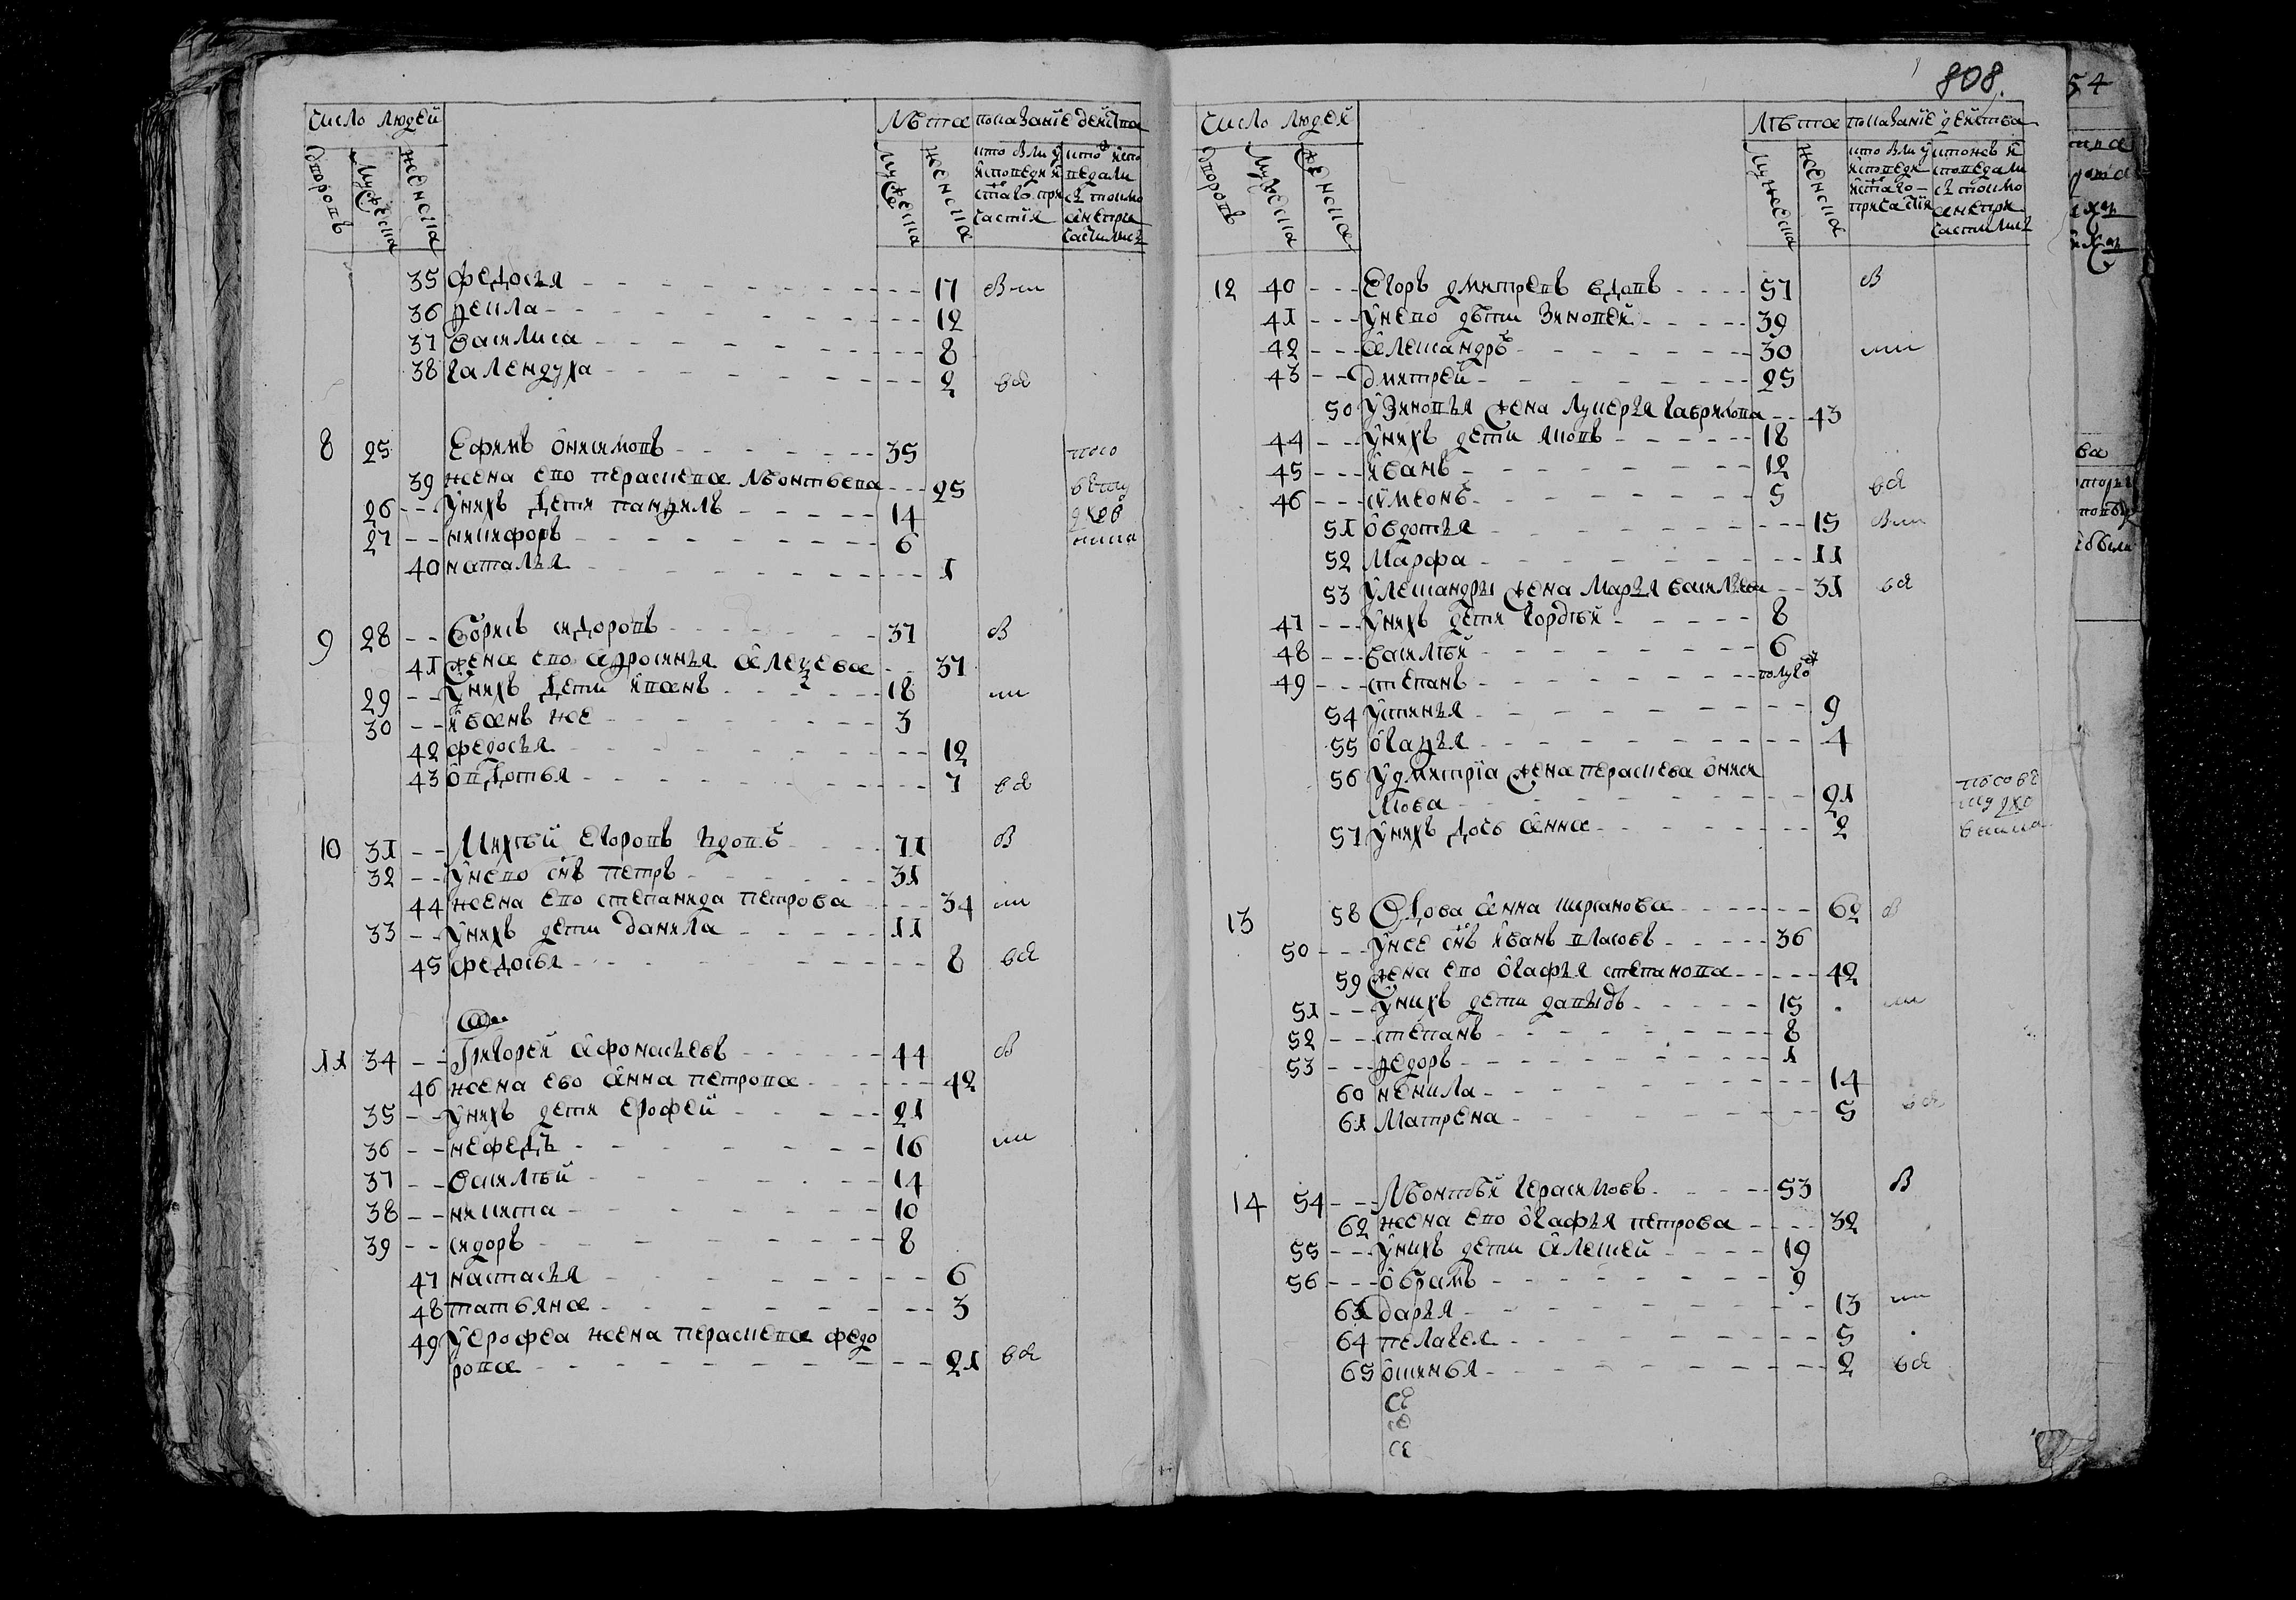 число людей
лѣта показание действа
дворовъ мужеска женска
мужеска женска
кто былъ у исповеди и стаго причастия
35 федосья 17 был
36 фекла 12
37 василиса 8
38 галендуха 2 вся
8 25 Ефимъ онисимовъ 35
39 жена ево парасковья Лѣонтьева 25
26 у нихъ дети панфилъ 14
27 никифоръ 6
40 наталья 1
9 28 борисъ сидоровъ 37 в
41 жена ево афросинья алексева 37
29 у нихъ дети иванъ 18
30 иванъ же 3
42 федосья 12
43 овдотья 7 вся
10 31 Михѣй Егоровъ вдовъ 71 в
32 у него снъ петръ 31
44 жена ево степанида петрова 34
33 у нихъ дети данила 11
45 федосья 8 вся
11 34 Григорей афонасьевъ 44 в
46 жена ево анна петрова 42
35 у нихъ дети ерофей 21
36 нефедъ 16
37 василѣй 14
38 никита 10
39 сидоръ 8
47 настасья 6
48 татьяна 3
49 у ерофеа жена парасковья федо
рова 21 вся
808.
число людей
лѣта показание действа
дворовъ мужеска женска
мужеска женска
12 40 Егоръ дмитревъ вдовъ 57 в
41 у него дѣти Зиновей 39
42 александръ 30
43 дмитрей 25
50 у Зиновья жена лукерья гаврилова 43
44 у нихъ дети яковъ 18
45 иванъ 12
46 симеонъ 5 вся
51 овдотья 15 был
52 Марфа 11
53 у лександры жена Марья василева 31 вся
47 у нихъ дети гордѣй 8
48 василѣй 6
49 степанъ полуго
54 устинья 9
55 огафья 4
56 у дмитриа жена парасковья ониси
мова 21
57 у нихъ дочь анна 2
13 58 вдова анна 62 в
50 у нее снъ иванъ власовъ 36
59 жена ево огафья степанова 42
51 у нихъ дети давыдъ 15
52 степанъ 8
53 федоръ 1
60 ненила 14
61 Матрена 5 вся
14 54 Лѣонтѣй Герасимовъ 53 в
62 жена ево огафья петрова 32
55 у нихъ дети алексей 19
56 обрамъ 9
63 дарья 13
64 пелагея 5
65 оксинья 2 вся
54